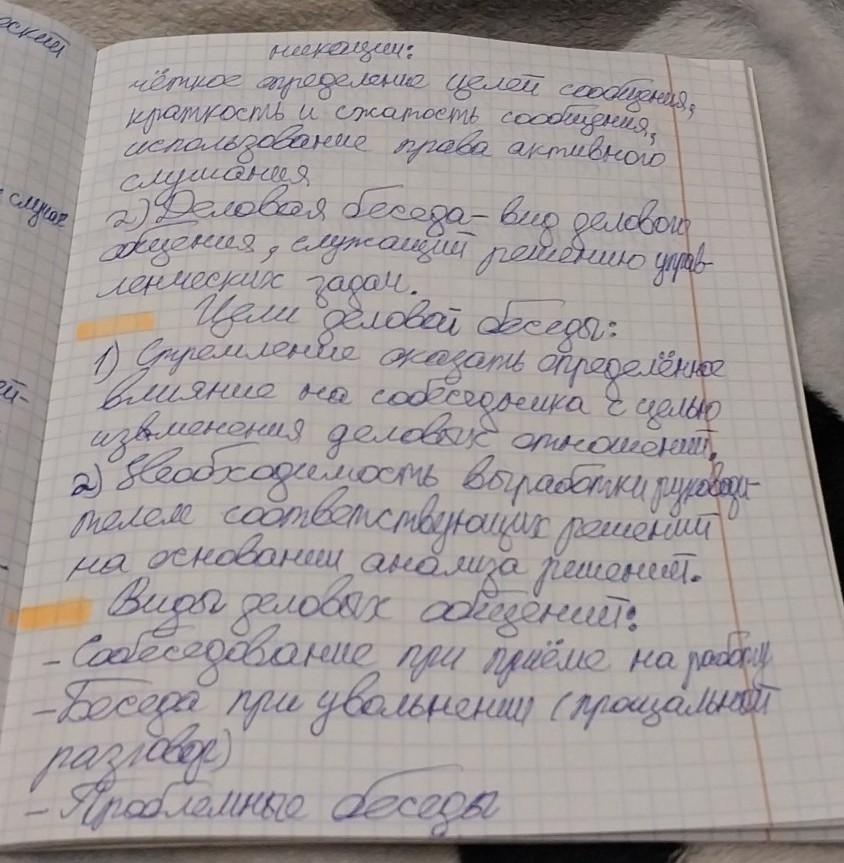 еский
случае
ей-
никации:
чёткое определение целей сообщения,
краткость и сжатость сообщения,
использование права активного
слушания
2) Деловая беседа - вид делового
общения, служащий решению управ-
ленческих задач.
Цели деловой беседы:
1) Стремление оказать определённое
влияние на собеседника с целью
изменения деловых отношений.
2) Необходимость выработки руководи-
телем соответствующих решений
на основании анализа решений.
Виды деловых общений:
- Собеседование при приёме на работу
- Беседа при увольнении (прощальный
разговор)
- Проблемные беседы